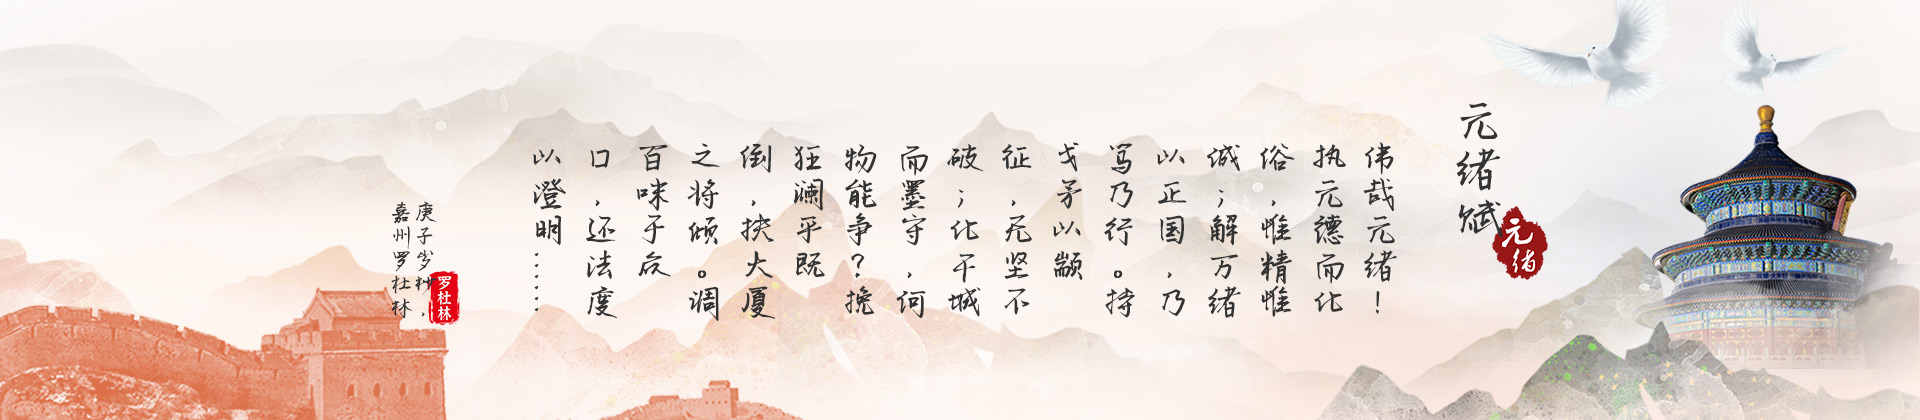 元绪赋
元绪
伟哉元绪！
执元德而化
俗，惟精惟
诚；解万绪
以正国，乃
笃乃行。持
戈矛以颛
征，无坚不
破；化干城
而墨守，何
物能争？挽
狂澜乎既
倒，扶大厦
之将倾。调
百味于众
口，还法度
以澄明……
庚子岁秋，
嘉州罗杜林
罗杜林